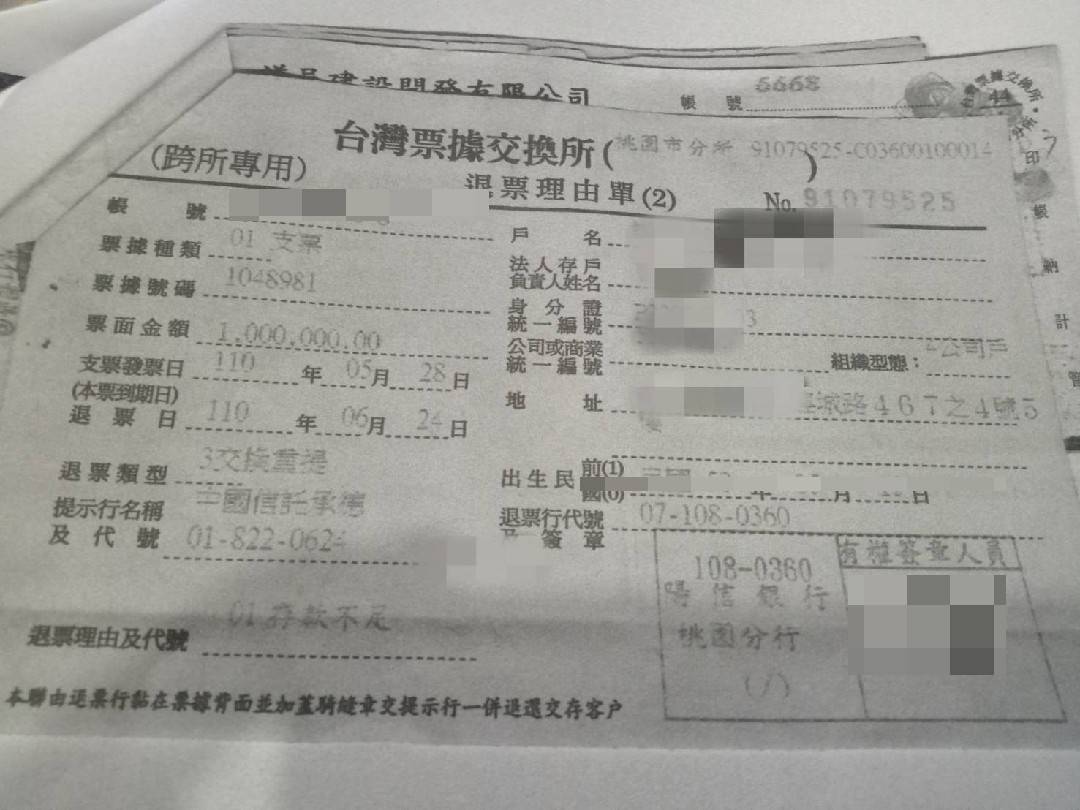 建設開發有限公司
帳 號 6668
台灣票據交換所
44
印
台灣票據交換所(桃園市分所 91079525-C03600100014)
(跨所專用)
退票理由單(2)
No. 91079525
帳 號
戶 名
票據種類 01 支票
法人存戶
負責人姓名
票據號碼 1048981
身 分 證
統一編號 3
票面金額 1,000,000.00
公司或商業
統一編號
組織型態: 公司戶
支票發票日 110 年 05 月 28 日
(本票到期日)
地 址 路467之4號5
退 票 日 110 年 06 月 24 日
退票類型 3交換重提
出生民國 前(1)
國(0) 年 月 日
提示行名稱 中國信託承德
及 代 號 01-822-0624
退票行代號 07-108-0360
及 簽 章
108-0360
陽信銀行
桃園分行
(/)
有權簽章人員
退票理由及代號 01 存款不足
本聯由退票行黏在票據背面並加蓋騎縫章交提示行一併退還交存客戶
帳
納
計